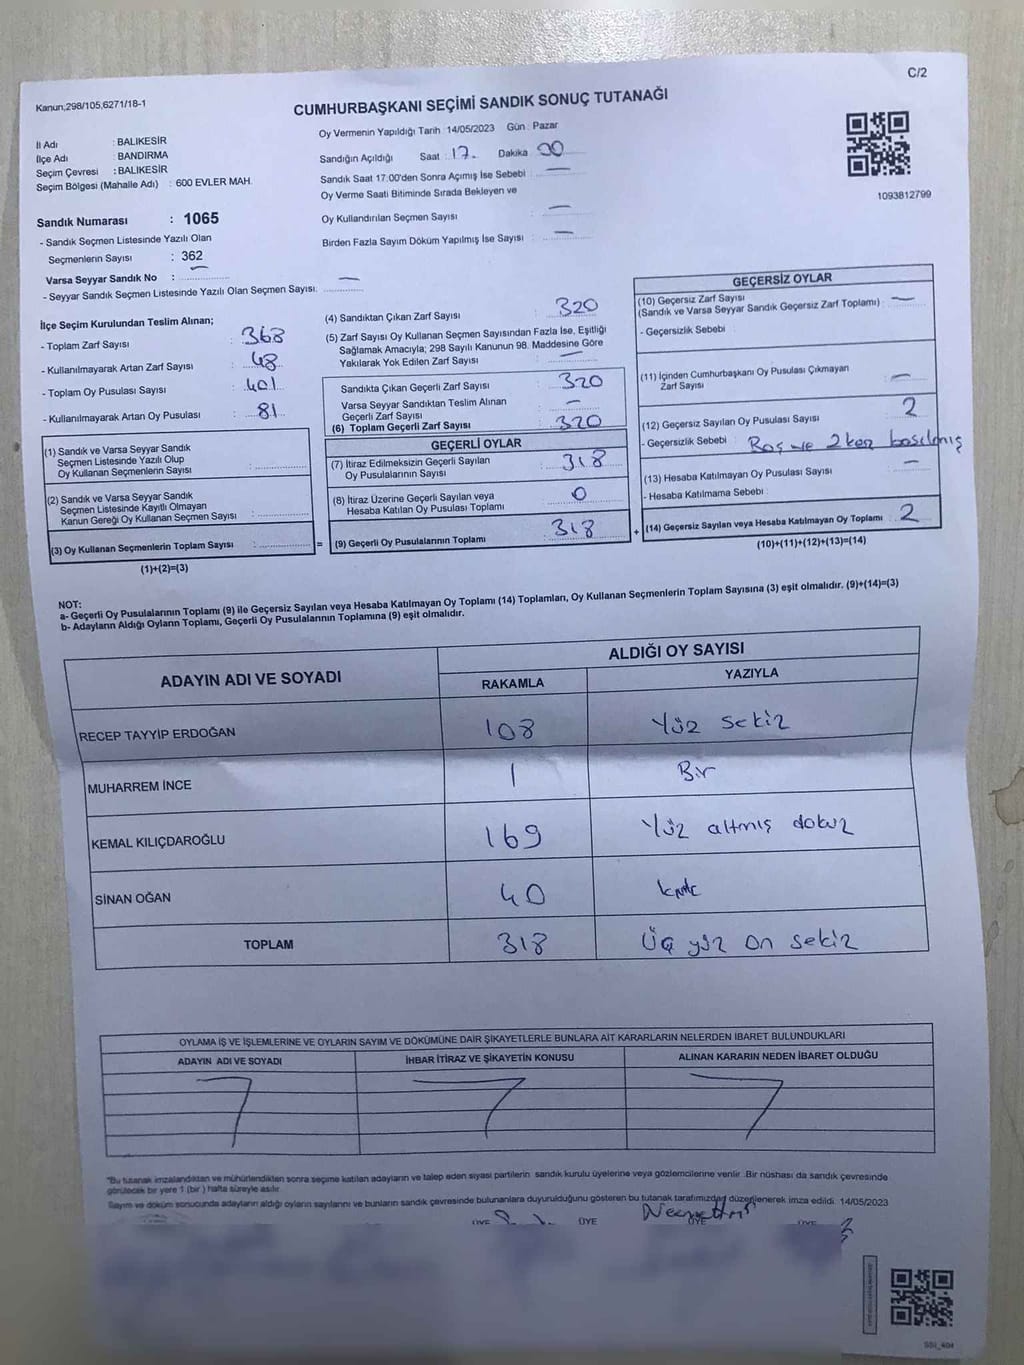 C/2
Kanun,298/105,6271/18-1
CUMHURBAŞKANI SEÇİMİ SANDIK SONUÇ TUTANAĞI
İl Adı : BALIKESİR
İlçe Adı : BANDIRMA
Seçim Çevresi : BALIKESİR
Seçim Bölgesi (Mahalle Adı) : 600 EVLER MAH.
Sandık Numarası : 1065
- Sandık Seçmen Listesinde Yazılı Olan
Seçmenlerin Sayısı : 362
Varsa Seyyar Sandık No :
- Seyyar Sandık Seçmen Listesinde Yazılı Olan Seçmen Sayısı:
Oy Vermenin Yapıldığı Tarih : 14/05/2023 Gün : Pazar
Sandığın Açıldığı Saat : 17 Dakika 00
Sandık Saat 17:00'den Sonra Açımış İse Sebebi :
Oy Verme Saati Bitiminde Sırada Bekleyen ve
Oy Kullandırılan Seçmen Sayısı :
Birden Fazla Sayım Döküm Yapılmış İse Sayısı :
1093812799
İlçe Seçim Kurulundan Teslim Alınan;
- Toplam Zarf Sayısı : 368
- Kullanılmayarak Artan Zarf Sayısı : 48
- Toplam Oy Pusulası Sayısı : 401
- Kullanılmayarak Artan Oy Pusulası : 81
(1) Sandık ve Varsa Seyyar Sandık
Seçmen Listesinde Yazılı Olup
Oy Kullanan Seçmenlerin Sayısı :
(2) Sandık ve Varsa Seyyar Sandık
Seçmen Listesinde Kayıtlı Olmayan
Kanun Gereği Oy Kullanan Seçmen Sayısı :
(3) Oy Kullanan Seçmenlerin Toplam Sayısı : =
(1)+(2)=(3)
(4) Sandıktan Çıkan Zarf Sayısı : 320
(5) Zarf Sayısı Oy Kullanan Seçmen Sayısından Fazla İse, Eşitliği
Sağlamak Amacıyla; 298 Sayılı Kanunun 98. Maddesine Göre
Yakılarak Yok Edilen Zarf Sayısı :
Sandıkta Çıkan Geçerli Zarf Sayısı : 320
Varsa Seyyar Sandıktan Teslim Alınan
Geçerli Zarf Sayısı :
(6) Toplam Geçerli Zarf Sayısı : 320
GEÇERLİ OYLAR
(7) İtiraz Edilmeksizin Geçerli Sayılan
Oy Pusulalarının Sayısı : 318
(8) İtiraz Üzerine Geçerli Sayılan veya
Hesaba Katılan Oy Pusulası Toplamı : 0
(9) Geçerli Oy Pusulalarının Toplamı : 318 +
GEÇERSİZ OYLAR
(10) Geçersiz Zarf Sayısı
(Sandık ve Varsa Seyyar Sandık Geçersiz Zarf Toplamı) :
- Geçersizlik Sebebi :
(11) İçinden Cumhurbaşkanı Oy Pusulası Çıkmayan
Zarf Sayısı :
(12) Geçersiz Sayılan Oy Pusulası Sayısı : 2
- Geçersizlik Sebebi : Boş ve 2 kez basılmış
(13) Hesaba Katılmayan Oy Pusulası Sayısı :
- Hesaba Katılmama Sebebi :
(14) Geçersiz Sayılan veya Hesaba Katılmayan Oy Toplamı : 2
(10)+(11)+(12)+(13)=(14)
NOT:
a- Geçerli Oy Pusulalarının Toplamı (9) ile Geçersiz Sayılan veya Hesaba Katılmayan Oy Toplamı (14) Toplamları, Oy Kullanan Seçmenlerin Toplam Sayısına (3) eşit olmalıdır. (9)+(14)=(3)
b- Adayların Aldığı Oyların Toplamı, Geçerli Oy Pusulalarının Toplamına (9) eşit olmalıdır.
ADAYIN ADI VE SOYADI
ALDIĞI OY SAYISI
RAKAMLA YAZIYLA
RECEP TAYYİP ERDOĞAN 108 Yüz sekiz
MUHARREM İNCE 1 Bir
KEMAL KILIÇDAROĞLU 169 Yüz altmış dokuz
SİNAN OĞAN 40 kırk
TOPLAM 318 Üç yüz on sekiz
OYLAMA İŞ VE İŞLEMLERİNE VE OYLARIN SAYIM VE DÖKÜMÜNE DAİR ŞİKAYETLERLE BUNLARA AİT KARARLARIN NELERDEN İBARET BULUNDUKLARI
ADAYIN ADI VE SOYADI İHBAR İTİRAZ VE ŞİKAYETİN KONUSU ALINAN KARARIN NEDEN İBARET OLDUĞU
*Bu tutanak imzalandıktan ve mühürlendikten sonra seçime katılan adayların ve talep eden siyasi partilerin sandık kurulu üyelerine veya gözlemcilerine verilir. Bir nüshası da sandık çevresinde
görülecek bir yere 1 (bir ) hafta süreyle asılır.
Sayım ve döküm sonucunda adayların aldığı oyların sayılarını ve bunların sandık çevresinde bulunanlara duyurulduğunu gösteren bu tutanak tarafımızdan düzenlenerek imza edildi. 14/05/2023
ÜYE ÜYE ÜYE ÜYE